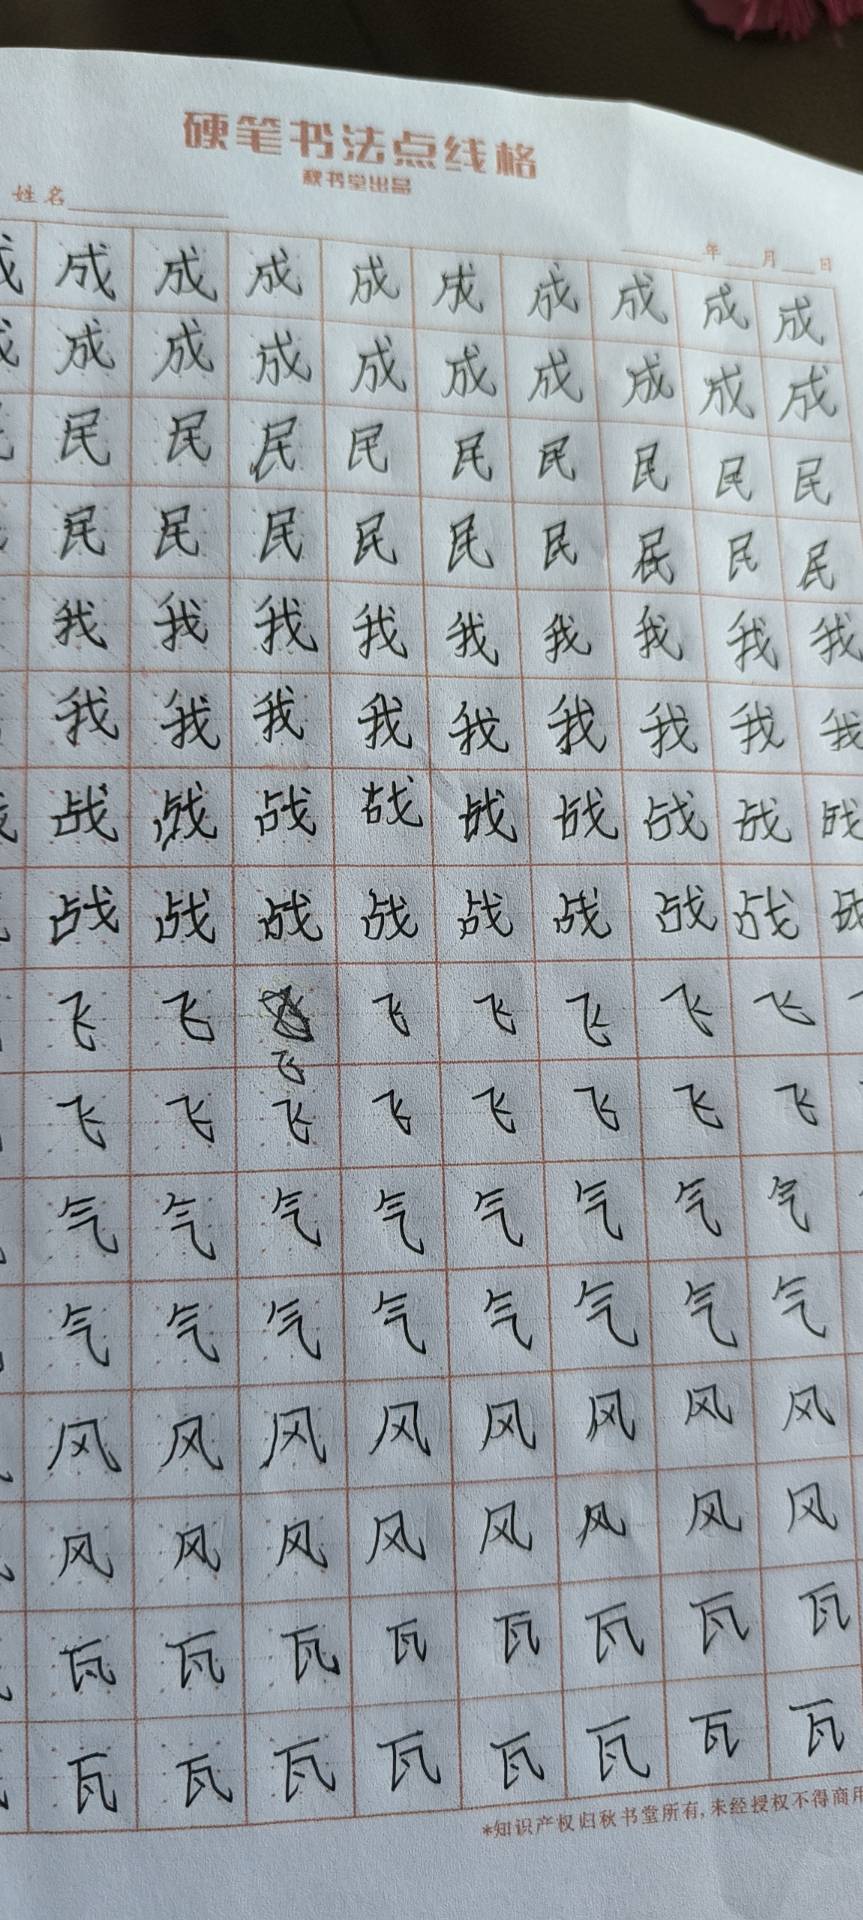 硬笔书法点线格
秋书堂出品
姓名
年 月 日
成 成 成 成 成 成 成 成 成 成
成 成 成 成 成 成 成 成 成 成
民 民 民 民 民 民 民 民 民
民 民 民 民 民 民 民 民 民
我 我 我 我 我 我 我 我 我
我 我 我 我 我 我 我 我 我
战 战 战 战 战 战 战 战 战
战 战 战 战 战 战 战 战 战
飞 飞 飞 飞 飞 飞 飞
飞
飞 飞 飞 飞 飞 飞 飞 飞
气 气 气 气 气 气 气 气
气 气 气 气 气 气 气 气
风 风 风 风 风 风 风 风
风 风 风 风 风 风 风 风
瓦 瓦 瓦 瓦 瓦 瓦 瓦 瓦
瓦 瓦 瓦 瓦 瓦 瓦 瓦 瓦
*知识产权归秋书堂所有,未经授权不得商用